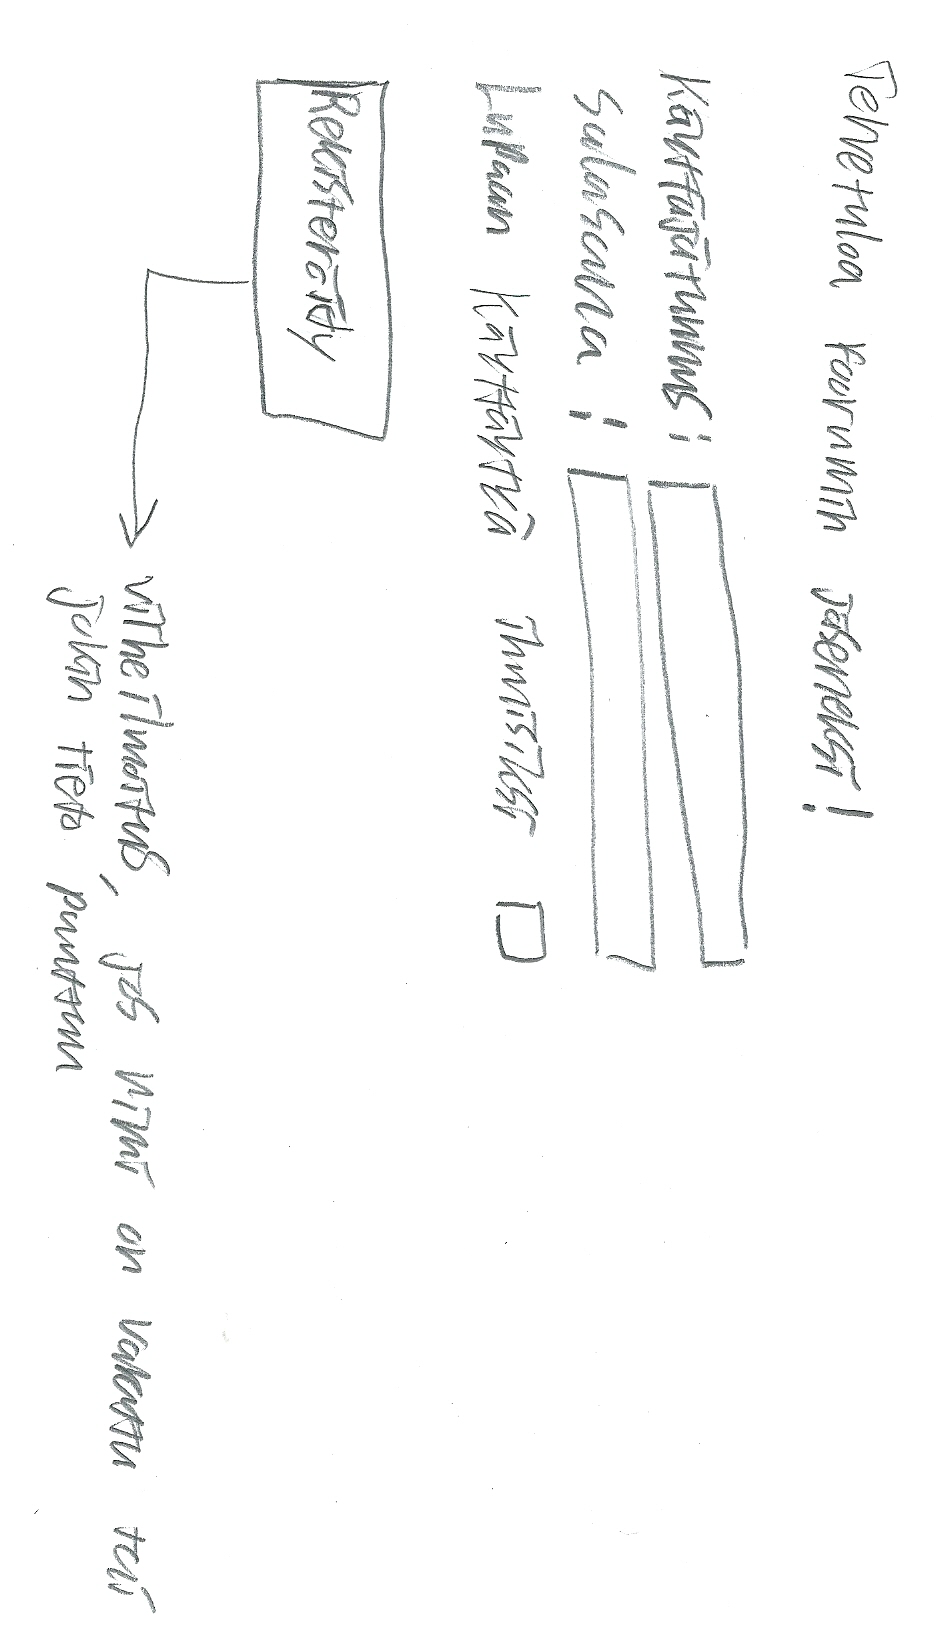 Tervetuloa foorumin jäseneksi!
Käyttäjätunnus:
Salasana:
Lupaan käyttäytyä ihmisiksi
Rekisteröidy
virheilmoitus, jos nimi on varattu tai
jokin tieto puuttuu